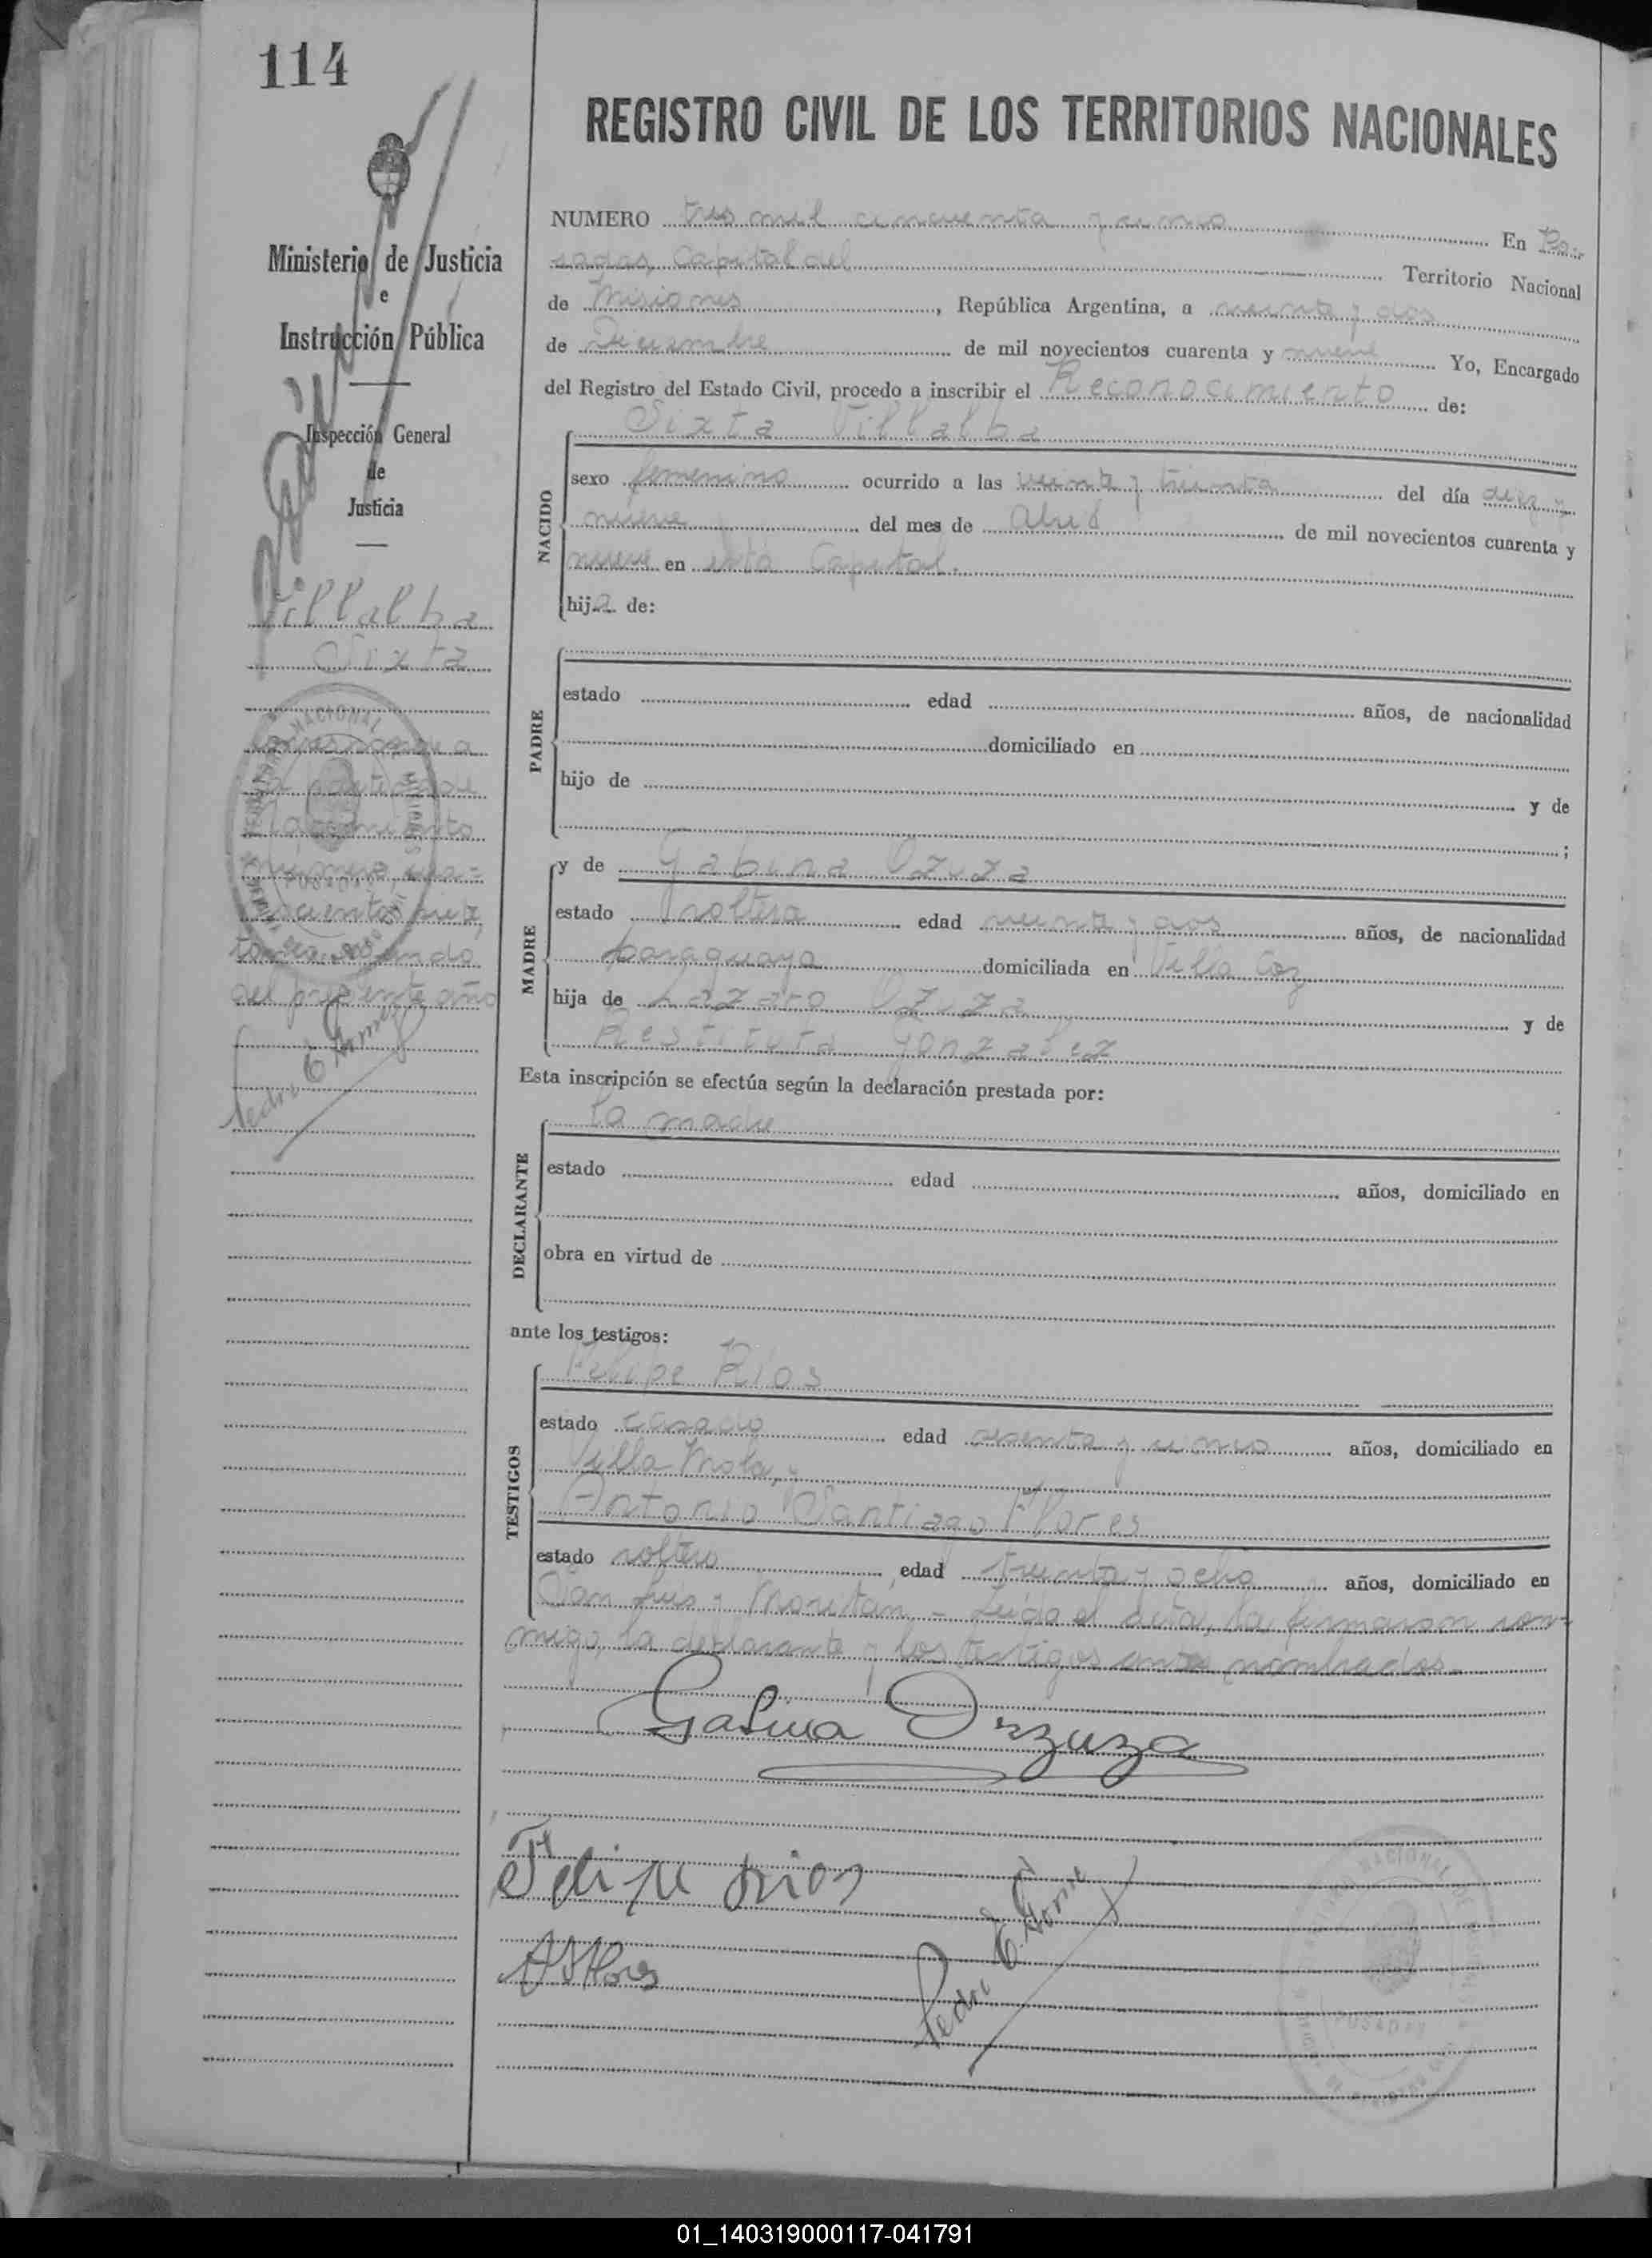 114
REGISTRO CIVIL DE LOS TERRITORIOS NACIONALES
Ministerio de Justicia
e
Instrucción Pública
Inspección General
de
Justicia
Villalba
Sixta
Corresponde a
nacimiento
número
cientos siete,
tomo segundo
del presente año
Pedro E. Gomez
NUMERO tres mil cincuenta y cinco En Po-
sadas, Capital del Territorio Nacional
de Misiones, República Argentina, a veinte y dos
de Diciembre de mil novecientos cuarenta y nueve Yo, Encargado
del Registro del Estado Civil, procedo a inscribir el Reconocimiento de:
Sixta Villalba
NACIDO
sexo femenino ocurrido a las veinte y treinta del día diez y
nueve del mes de Abril de mil novecientos cuarenta y
nueve en esta Capital.
hija de:
PADRE
estado edad años, de nacionalidad
domiciliado en
hijo de y de
;
MADRE
y de Gabina Ozuza
estado soltera edad veinte y dos años, de nacionalidad
paraguaya domiciliada en Villa Coz
hija de Lazaro Ozuza y de
Restituta Gonzalez
Esta inscripción se efectúa según la declaración prestada por:
la madre
DECLARANTE
estado edad años, domiciliado en
obra en virtud de
ante los testigos:
Felipe Rios
TESTIGOS
estado casado edad sesenta y cinco años, domiciliado en
Villa Mola, y
Antonio Santiago Flores
estado soltero edad treinta y ocho años, domiciliado en
San Luis y Moritán. - Leída el acta, la firmaron con-
migo, la declarante y los testigos antes nombrados.-
Gabina Orzuza
Felipe Rios
ASFlores
Pedro E. Gomez
POSADAS
01_140319000117-041791